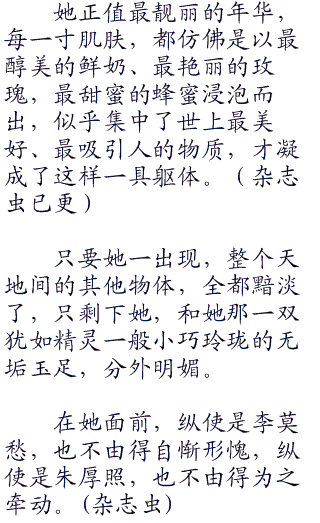 她正值最靓丽的年华，
每一寸肌肤，都仿佛是以最
醇美的鲜奶、最艳丽的玫
瑰，最甜蜜的蜂蜜浸泡而
出，似乎集中了世上最美
好、最吸引人的物质，才凝
成了这样一具躯体。（杂志
虫已更）
只要她一出现，整个天
地间的其他物体，全都黯淡
了，只剩下她，和她那一双
犹如精灵一般小巧玲珑的无
垢玉足，分外明媚。
在她面前，纵使是李莫
愁，也不由得自惭形愧，纵
使是朱厚照，也不由得为之
牵动。(杂志虫)